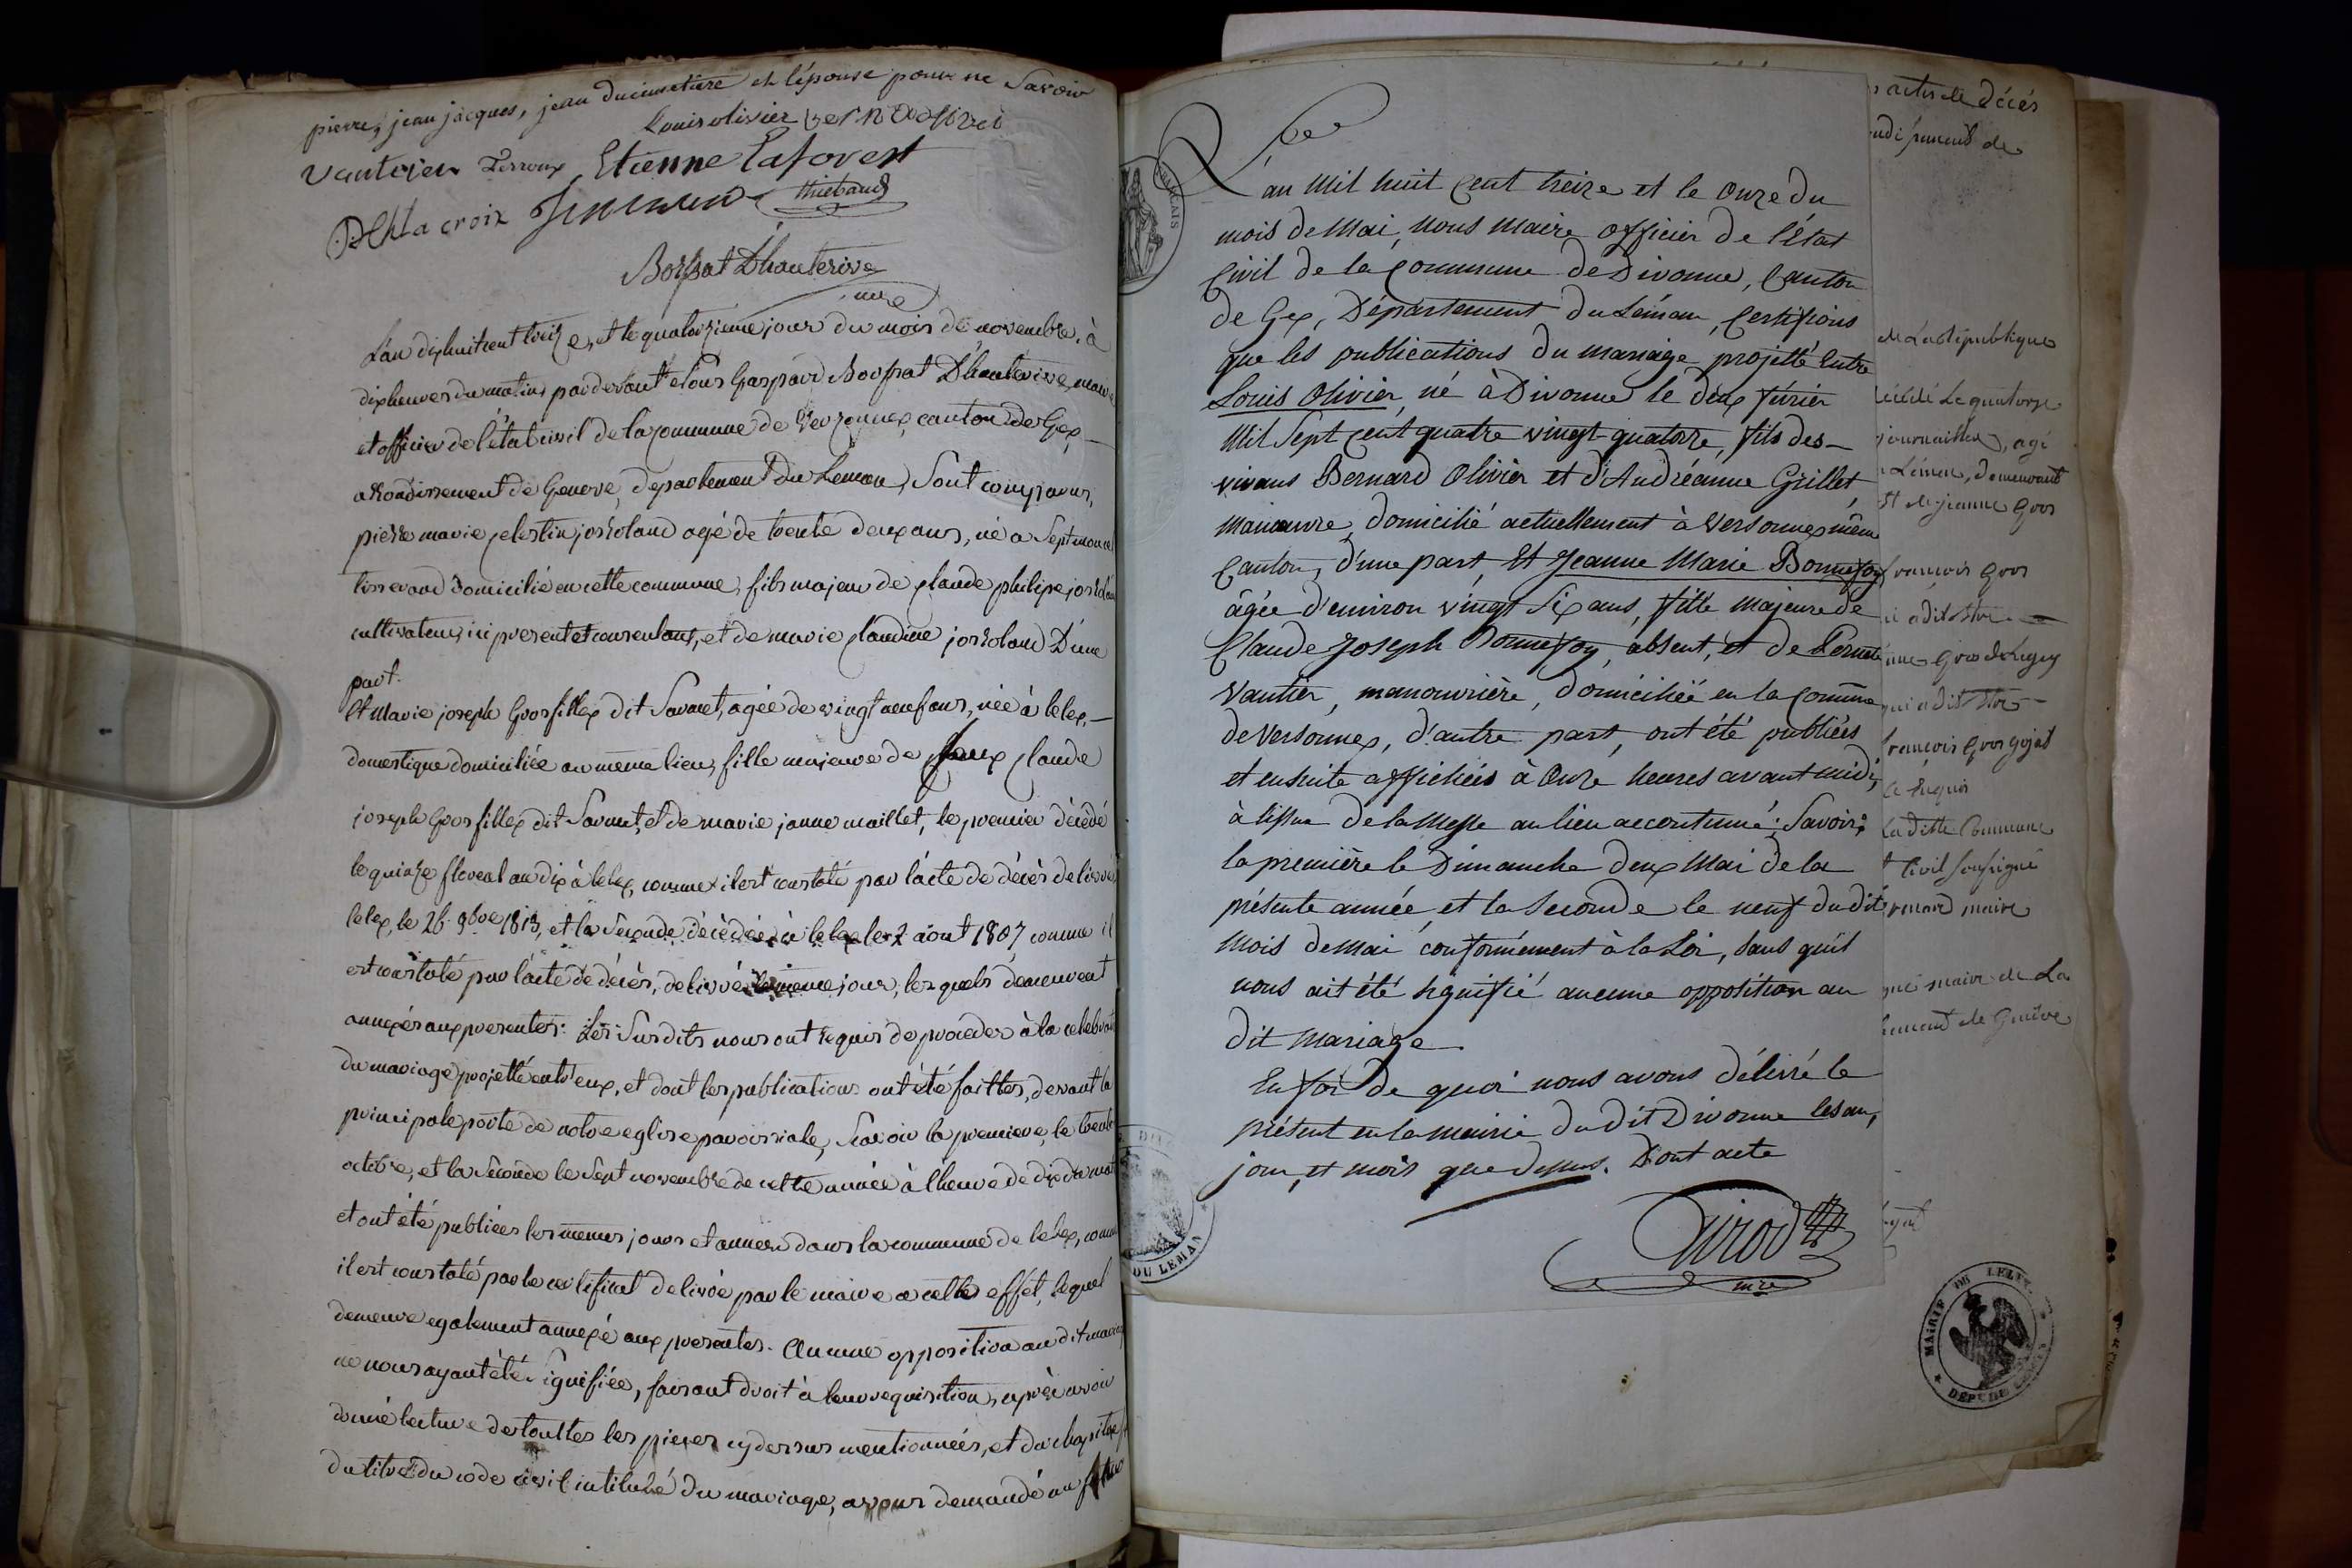 pierre, jean jacques, jean ducimetière et lépouse pour ne Savoir
Louis olivier
Vautrien Terroux Etienne Laforest
DChLacroix thiebaud
Bossat D'hauterive
mre
L'an dixhuitcent treize, et le quatorzieme jour du mois de novembre, à
dix heures du matin, par devant Nous Gaspard Bossat D'hauterive, maire
et officier de l'état civil de la commune de Versonnex, canton de Gex,
arrondissement de Geneve, departement du Leman, Sont comparus,
pierre marie celestin josroland agé de trente deux ans, né a Septmoncel
tisserand domicilié en cette commune, fils majeur de claude philipe josroland
cultivateur, ici present et consentant, et de marie claudine josroland D'une
part.
Et Marie joseph Grosfillex dit Savonet, agée de vingt neuf ans, née à lelex,
domestique domiciliée au meme lieu, fille majeure de feux claude
joseph Grosfillex dit Savonet, et de marie janne maillet, le premier décédé
le quinze floreal an dix à lelex, comme il est constaté par lacte de décès delivré
lelex, le 26 9bre 1813, et la Seconde décédée à lelex le 2 aout 1807 comme il
est constaté par l'acte de décès, delivré le meme jour, les quels demeurent
annexés aux presentes. Les Susdits nous ont requis de proceder à la celebration
du mariage projetté entr'eux, et dont les publications ont été faittes, devant la
principale porte de notre eglise paroissiale, Scavoir la premiere, le trente
octobre, et la Seconde le Sept novembre de cette année à lheure de dix du matin
et ont été publiées les memes jours et années dans la commune de lelex, comme
il est constaté par le certificat delivré par le maire a cette effet, lequel
demeure egalement annexé aux presentes. Aucune opposition au dit mariage
ne nous ayant été Signifiée, faisant droit à leur requisition, après avoir
donné lecture de touttes les pieces cy dessus mentionnées, et du chapitre
du titre du code civil intitulé du mariage, avons demandé au futur
L'an Mil huit Cent treize et le Onze du
mois de Mai, Nous Maire Officier de l'État
Civil de la Commune de Divonne, Canton
de Gex, Département du Léman, Certifions
que les publications du mariage projetté Entre
Louis Olivier, né à Divonne le deux février
Mil Sept Cent quatre vingt quatorze, fils des
vivans Bernard Olivier et d'Andréanne Grillet,
Manœuvre, domicilié actuellement à Versonnex même
Canton, d'une part, Et Jeanne Marie Bonnefoy
âgée d'environ vingt Six ans, fille Majeure de
Claude Joseph Bonnefoy, absent, et de Pernette
Vautier, manouvrière, domiciliée en la Comune
de Versonnex, d'autre part, ont été publiées
et ensuite affichées à Onze heures avant midi,
à l'issue de la Messe au lieu accoutumé; Savoir;
la première le Dimanche deux Mai de la
présente année et la Seconde le neuf du dit
Mois de Mai conformément à la Loi, Sans qu'il
nous ait été Signifié aucune opposition au
dit Mariage.
En foi de quoi nous avons délivré le
présent en la mairie du dit Divonne les an,
jour, et mois que dessus. Dont acte
Girod
mre
FRANÇAIS
DU LEMAN
actes de décés
de
de La République
décédé Le quatorze
journaillier, agé
Léman, demeurant
et de jeanne Gros
françois Gros
a dit être
Gros
qui a dit être
françois Gros gojat
La ditte Commune
Civil soussigné
maire
maire de La
de Genève
MAIRIE DE LELEX